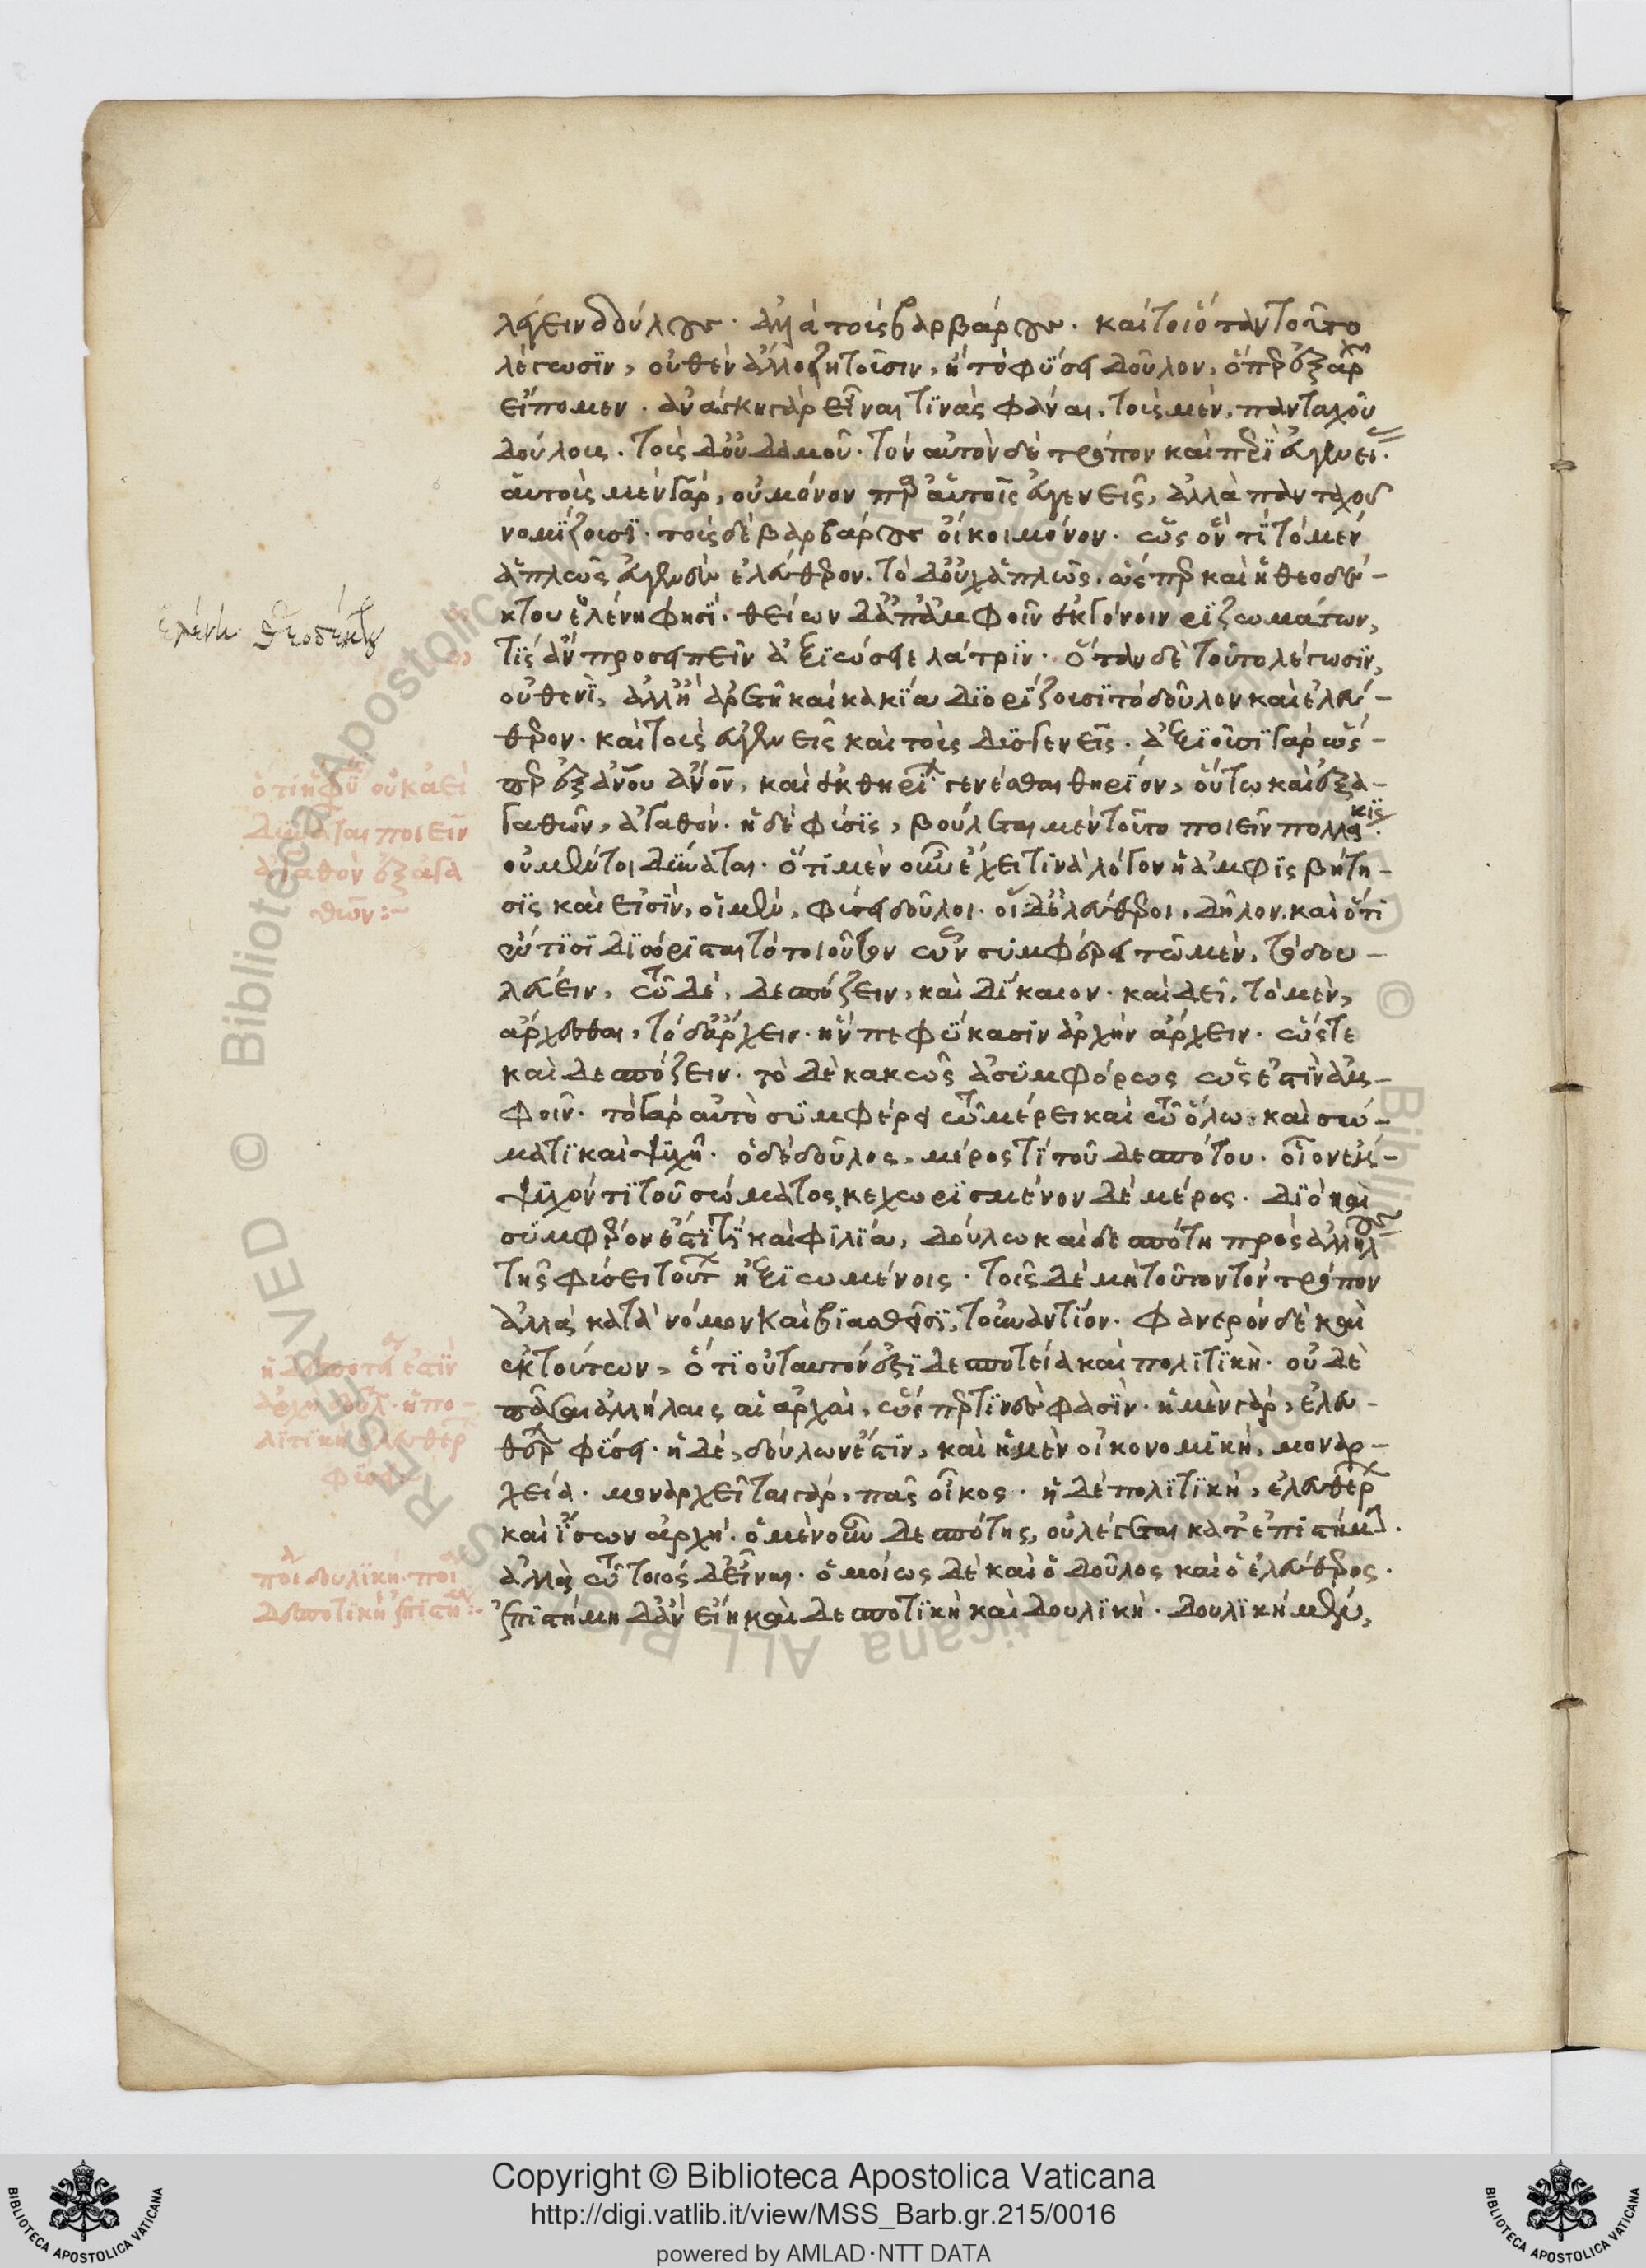 λέγειν δούλους· ἀλλὰ τοὺς βαρβάρους. καίτοι ὅταν τοῦτο
λέγωσιν, οὐθὲν ἄλλο ζητοῦσιν, ἢ τὸ φύσει δοῦλον, ὅπερ ἐξ ἀρχῆς
εἴπομεν. ἀνάγκη γὰρ εἶναι τινὰς φάναι, τοὺς μὲν, πανταχοῦ
δούλους. τοὺς δ' οὐδαμοῦ. τὸν αὐτὸν δὲ τρόπον καὶ περὶ εὐγενείας.
αὑτοὺς μὲν γὰρ, οὐ μόνον παρ' αὑτοῖς εὐγενεῖς, ἀλλὰ πανταχοῦ
νομίζουσι. τοὺς δὲ βαρβάρους οἴκοι μόνον. ὡς ὄν τι τὸ μὲν
ἁπλῶς εὐγενὲς καὶ ἐλεύθερον. τὸ δ' οὐχ ἁπλῶς. ὥσπερ καὶ ἡ θεοδέ-
κτου ἑλένη φησί. θείων δ' ἀπ' ἀμφοῖν ἐκγόνοιν ῥιζωμάτων,
τίς ἂν προσειπεῖν ἀξιώσειε λάτριν. ὅταν δὲ τοῦτο λέγωσιν,
οὐθενὶ, ἀλλ' ἢ ἀρετῇ καὶ κακίᾳ διορίζουσι τὸ δοῦλον καὶ ἐλεύ-
θερον. καὶ τοὺς εὐγενεῖς καὶ τοὺς δυσγενεῖς. ἀξιοῦσι γὰρ ὥσ-
περ ἐξ ἀνου ἀνον, καὶ ἐκ θηρίων γενέσθαι θηρίον, οὕτω καὶ ἐξ ἀ-
γαθῶν, ἀγαθόν. ἡ δὲ φύσις, βούλεται μὲν τοῦτο ποιεῖν πολλάκις.
οὐ μέντοι δύναται. ὅτι μὲν οὖν ἔχει τινὰ λόγον ἡ ἀμφισβήτη-
σις καὶ εἰσὶν, οἱ μὲν, φύσει δοῦλοι. οἱ δ' ἐλεύθεροι, δῆλον. καὶ ὅτι
ἔν τισι διώρισται τὸ τοιοῦτον ὧν συμφέρει τῷ μὲν, τὸ δου-
λεύειν, τῷ δὲ, δεσπόζειν, καὶ δίκαιον. καὶ δεῖ, τὸ μὲν,
ἄρχεσθαι, τὸ δ' ἄρχειν. ἣν πεφύκασιν ἀρχὴν ἄρχειν. ὥστε
καὶ δεσπόζειν. τὸ δὲ κακῶς ἀσυμφόρως ὥς ἐστιν ἀμ-
φοῖν. τὸ γὰρ αὐτὸ συμφέρει τῷ μέρει καὶ τῷ ὅλῳ. καὶ σώ-
ματι καὶ ψυχῇ. ὁ δὲ δοῦλος, μέρος τι τοῦ δεσπότου. οἷον ἔμ-
ψυχόν τι τοῦ σώματος κεχωρισμένον δὲ μέρος. διὸ καὶ
συμφέρον ἐστί τι καὶ φιλία, δούλῳ καὶ δεσπότῃ πρὸς ἀλλήλους
τῆς φύσει τούτων ἠξιωμένοις. τοῖς δὲ μὴ τοῦτον τὸν τρόπον
ἀλλὰ κατὰ νόμον καὶ βιασθεῖσι, τοὐναντίον. φανερὸν δὲ καὶ
ἐκ τούτων, ὅτι οὐ ταυτόν ἐστι δεσποτεία καὶ πολιτικὴ. οὐδὲ
πᾶσαι ἀλλήλαις αἱ ἀρχαὶ, ὥσπερ τινές φασὶν. ἡ μὲν γὰρ, ἐλευ-
θέρων φύσει. ἡ δὲ, δούλων ἐστίν, καὶ ἡ μὲν οἰκονομικὴ, μοναρ-
χεία. μοναρχεῖται γὰρ, πᾶς οἶκος. ἡ δὲ πολιτικὴ, ἐλευθέρων
καὶ ἴσων ἀρχή. ὁ μὲν οὖν δεσπότης, οὐ λέγεται κατ' ἐπιστήμην.
ἀλλὰ τῷ τοιόσδ' εἶναι. ὁμοίως δὲ καὶ ὁ δοῦλος καὶ ὁ ἐλεύθερος.
ἐπιστήμη δ' ἂν εἴη καὶ δεσποτικὴ καὶ δουλικὴ. δουλικὴ μὲν,
ἑλένη θεοδέκτου
ὅτι ἡ φύσις οὐκ ἀεὶ
δύναται ποιεῖν
ἀγαθὸν ἐξ ἀγα
θῶν:-
ἡ δεσποτεία ἐστὶν
ἀρχὴ δούλων. ἡ πο-
λιτικὴ ἐλευθέρων
φύσει:-
ποία δουλικὴ. ποία
δεσποτικὴ ἐπιστήμη:-
Copyright © Biblioteca Apostolica Vaticana
http://digi.vatlib.it/view/MSS_Barb.gr.215/0016
powered by AMLAD·NTT DATA
BIBLIOTECA APOSTOLICA VATICANA
BIBLIOTECA APOSTOLICA VATICANA